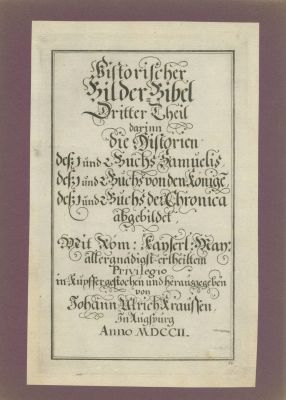 Historischer
Bilder Bibel
Dritter Theil
darinn
die Historien
deß 1 und 2 Buchs Samuelis
deß 1 und 2 Buchs von den Königē
deß 1 und 2 Buchs der Chronica
abgebildet,
Mit Röm: Kayserl: May:
allergnädigst ertheiltem
Privilegio
in Kupffer gestochen und heraus gegeben
von
Johann Ulrich Kraussen
In Augspurg
Anno MDCCII.